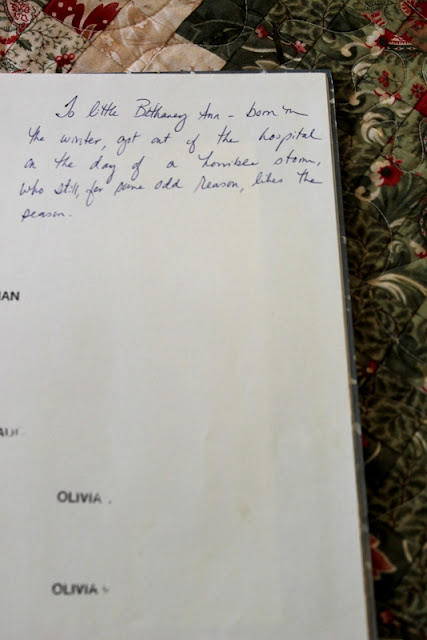 To little Bethaney Ann - born in
the winter, got out of the hospital
on the day of a horrible storm,
who still, for some odd reason, likes the
season.
IAN
OLIVIA
OLIVIA